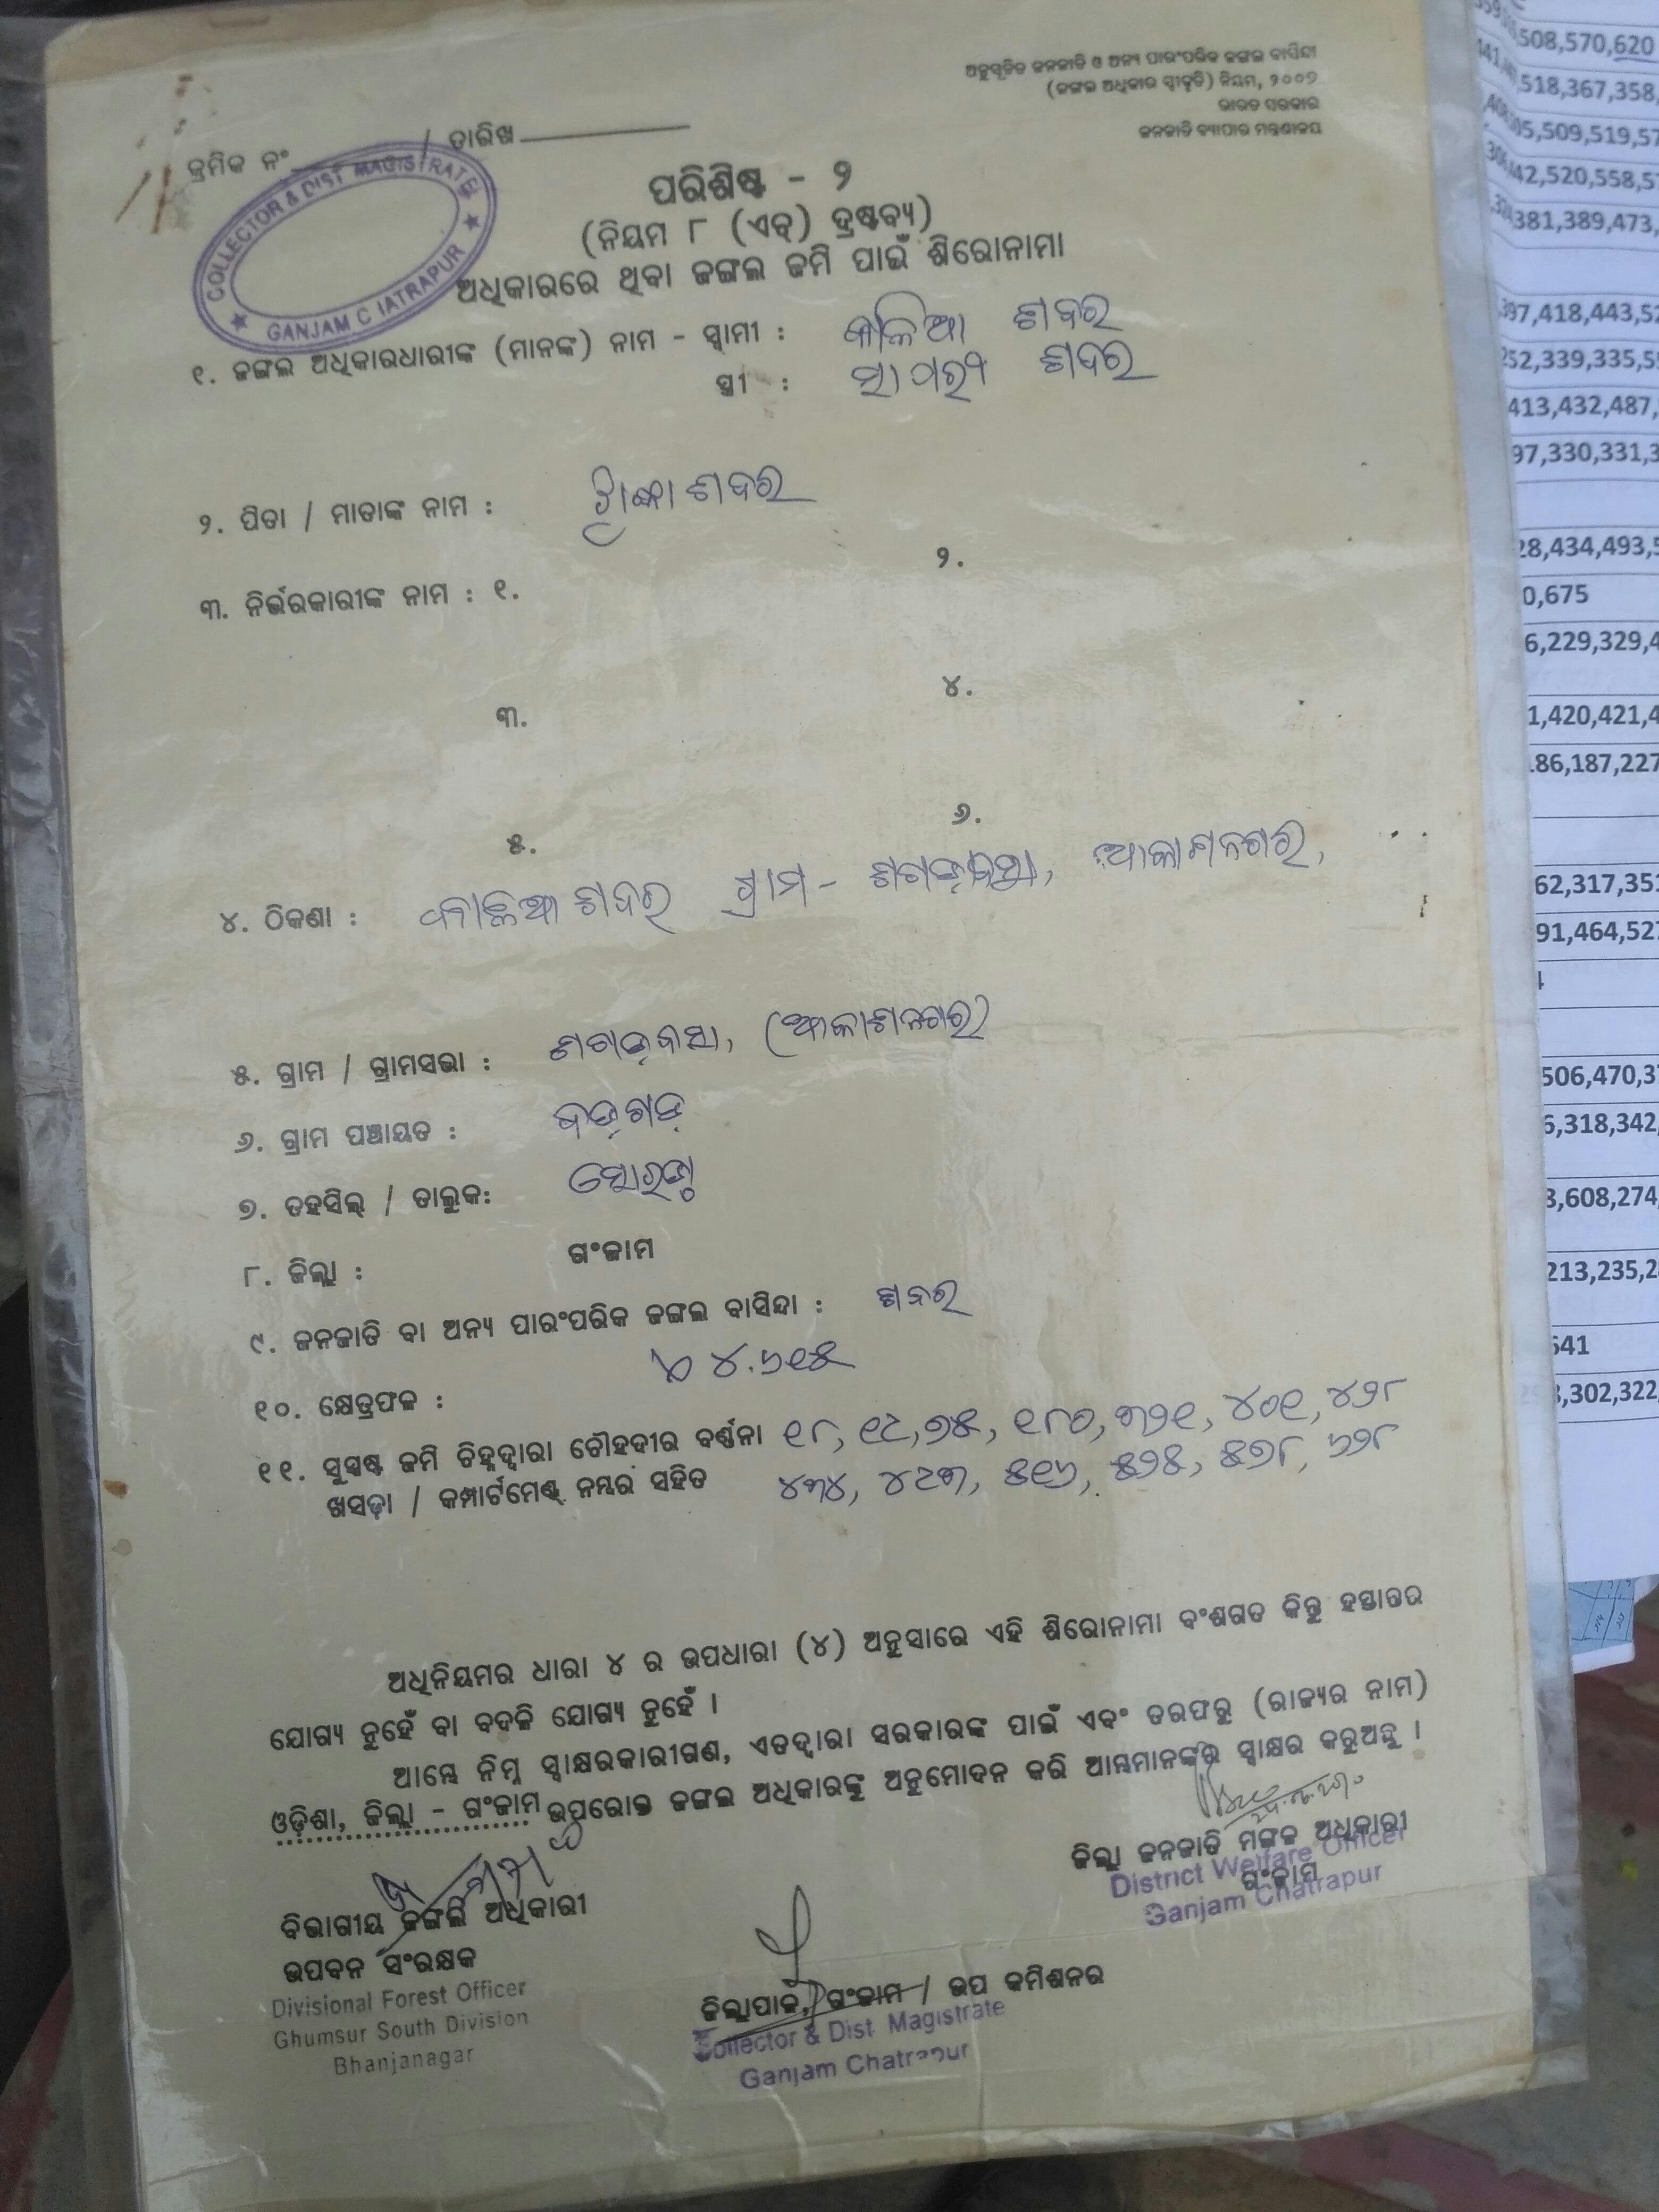 ଅନୁସୂଚିତ ଜନଜାତି ଓ ଅନ୍ୟ ପାରଂପରିକ ଜଙ୍ଗଲ ବାସିନ୍ଦା
(ଜଙ୍ଗଲ ଅଧିକାର ସ୍ୱୀକୃତି) ନିୟମ, ୨୦୦୭
ଭାରତ ସରକାର
ଜନଜାତି ବ୍ୟାପାର ମନ୍ତ୍ରଣାଳୟ
କ୍ରମିକ ନଂ / ତାରିଖ
COLLECTOR & DIST MAGISTRATE
GANJAM
ପରିଶିଷ୍ଟ - ୨
(ନିୟମ ୮ (ଏଚ୍) ଦ୍ରଷ୍ଟବ୍ୟ)
ଅଧିକାରରେ ଥିବା ଜଙ୍ଗଲ ଜମି ପାଇଁ ଶିରୋନାମା
୧. ଜଙ୍ଗଲ ଅଧିକାରଧାରୀଙ୍କ (ମାନଙ୍କ) ନାମ - ସ୍ୱାମୀ : କାଳିଆ ଶବର
ସ୍ତ୍ରୀ : ଶବର
୨. ପିତା / ମାତାଙ୍କ ନାମ : ଶବର
୩. ନିର୍ଭରକାରୀଙ୍କ ନାମ : ୧. ୨.
୩. ୪.
୫. ୬.
୪. ଠିକଣା : କାଳିଆ ଶବର ଗ୍ରାମ - ଶଗଡ଼ବସା, ଆକାଶନଗର,
୫. ଗ୍ରାମ / ଗ୍ରାମସଭା : ଶଗଡ଼ବସା, (ଆକାଶନଗର)
୬. ଗ୍ରାମ ପଞ୍ଚାୟତ : ବଡ଼ଗଡ଼
୭. ତହସିଲ୍ / ତାଲୁକ: ସୋରଡ଼ା
୮. ଜିଲ୍ଲା : ଗଂଜାମ
୯. ଜନଜାତି ବା ଅନ୍ୟ ପାରଂପରିକ ଜଙ୍ଗଲ ବାସିନ୍ଦା : ଶବର
୧୦. କ୍ଷେତ୍ରଫଳ : ୪.୬୧୫
୧୧. ସୁସ୍ପଷ୍ଟ ଜମି ଚିହ୍ନଦ୍ୱାରା ଚୌହଦୀର ବର୍ଣ୍ଣନା ୧୮, ୧୯, ୭୫, ୧୮୦, ୩୨୧, ୪୦୧, ୪୨୮
ଖସଡ଼ା / କମ୍ପାର୍ଟମେଣ୍ଟ୍ ନମ୍ବର ସହିତ ୪୩୪, ୪୯୩, ୫୧୬, ୫୨୫, ୫୭୮, ୬୨୮
ଅଧିନିୟମର ଧାରା ୪ ର ଉପଧାରା (୪) ଅନୁସାରେ ଏହି ଶିରୋନାମା ବଂଶଗତ କିନ୍ତୁ ହସ୍ତାନ୍ତର
ଯୋଗ୍ୟ ନୁହେଁ ବା ବଦଳି ଯୋଗ୍ୟ ନୁହେଁ ।
ଆମ୍ଭେ ନିମ୍ନ ସ୍ୱାକ୍ଷରକାରୀଗଣ, ଏତଦ୍ୱାରା ସରକାରଙ୍କ ପାଇଁ ଏବଂ ତରଫରୁ (ରାଜ୍ୟର ନାମ)
ଓଡ଼ିଶା, ଜିଲ୍ଲା - ଗଂଜାମ ଉପରୋକ୍ତ ଜଙ୍ଗଲ ଅଧିକାରଙ୍କୁ ଅନୁମୋଦନ କରି ଆମ୍ଭମାନଙ୍କର ସ୍ୱାକ୍ଷର କରୁଅଛୁ ।
ଜିଲ୍ଲା ଜନଜାତି ମଙ୍ଗଳ ଅଧିକାରୀ
ଗଂଜାମ
District Welfare Officer
Ganjam Chatrapur
ବିଭାଗୀୟ ଜଙ୍ଗଲ ଅଧିକାରୀ
ଉପବନ ସଂରକ୍ଷକ
Divisional Forest Officer
Ghumsur South Division
Bhanjanagar
ଜିଲ୍ଲାପାଳ, ଗଂଜାମ / ଉପ କମିଶନର
Collector & Dist. Magistrate
Ganjam Chatrapur
508,570,620
518,367,358,
381,389,473,
97,418,443,
413,432,487,
97,330,331,
0,675
1,420,421,
186,187,227
62,317,351
91,464,527
506,470,
6,318,342,
3,608,274,
213,235,
641
302,322,